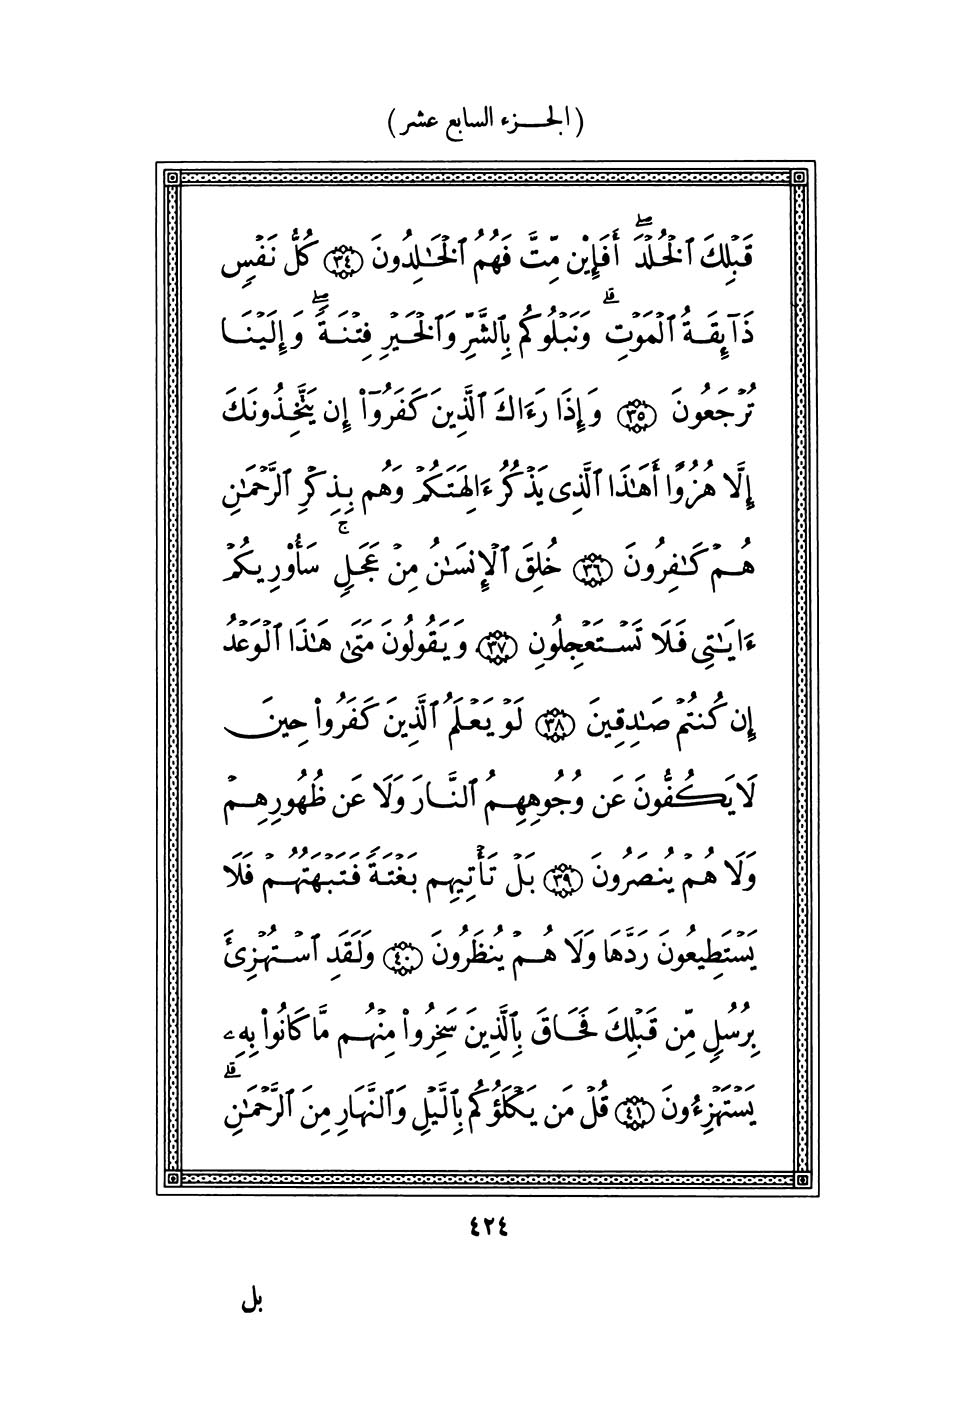 (الجزء السابع عشر)
قَبْلِكَ ٱلْخُلْدَۖ أَفَإِيْن مِّتَّ فَهُمُ ٱلْخَٰلِدُونَ ٣٤ كُلُّ نَفْسٍ
ذَآئِقَةُ ٱلْمَوْتِۗ وَنَبْلُوكُم بِٱلشَّرِّ وَٱلْخَيْرِ فِتْنَةًۖ وَإِلَيْنَا
تُرْجَعُونَ ٣٥ وَإِذَا رَءَاكَ ٱلَّذِينَ كَفَرُوٓاْ إِن يَتَّخِذُونَكَ
إِلَّا هُزُوًا أَهَٰذَا ٱلَّذِى يَذْكُرُ ءَالِهَتَكُمْ وَهُم بِذِكْرِ ٱلرَّحْمَٰنِ
هُمْ كَٰفِرُونَ ٣٦ خُلِقَ ٱلْإِنسَٰنُ مِنْ عَجَلٍۚ سَأُوْرِيكُمْ
ءَايَٰتِى فَلَا تَسْتَعْجِلُونِ ٣٧ وَيَقُولُونَ مَتَىٰ هَٰذَا ٱلْوَعْدُ
إِن كُنتُمْ صَٰدِقِينَ ٣٨ لَوْ يَعْلَمُ ٱلَّذِينَ كَفَرُواْ حِينَ
لَا يَكُفُّونَ عَن وُجُوهِهِمُ ٱلنَّارَ وَلَا عَن ظُهُورِهِمْ
وَلَا هُمْ يُنصَرُونَ ٣٩ بَلْ تَأْتِيهِم بَغْتَةً فَتَبْهَتُهُمْ فَلَا
يَسْتَطِيعُونَ رَدَّهَا وَلَا هُمْ يُنظَرُونَ ٤٠ وَلَقَدِ ٱسْتُهْزِئَ
بِرُسُلٍ مِّن قَبْلِكَ فَحَاقَ بِٱلَّذِينَ سَخِرُواْ مِنْهُم مَّا كَانُواْ بِهِۦ
يَسْتَهْزِءُونَ ٤١ قُلْ مَن يَكْلَؤُكُم بِٱلَّيْلِ وَٱلنَّهَارِ مِنَ ٱلرَّحْمَٰنِۗ
٤٢٤
بل